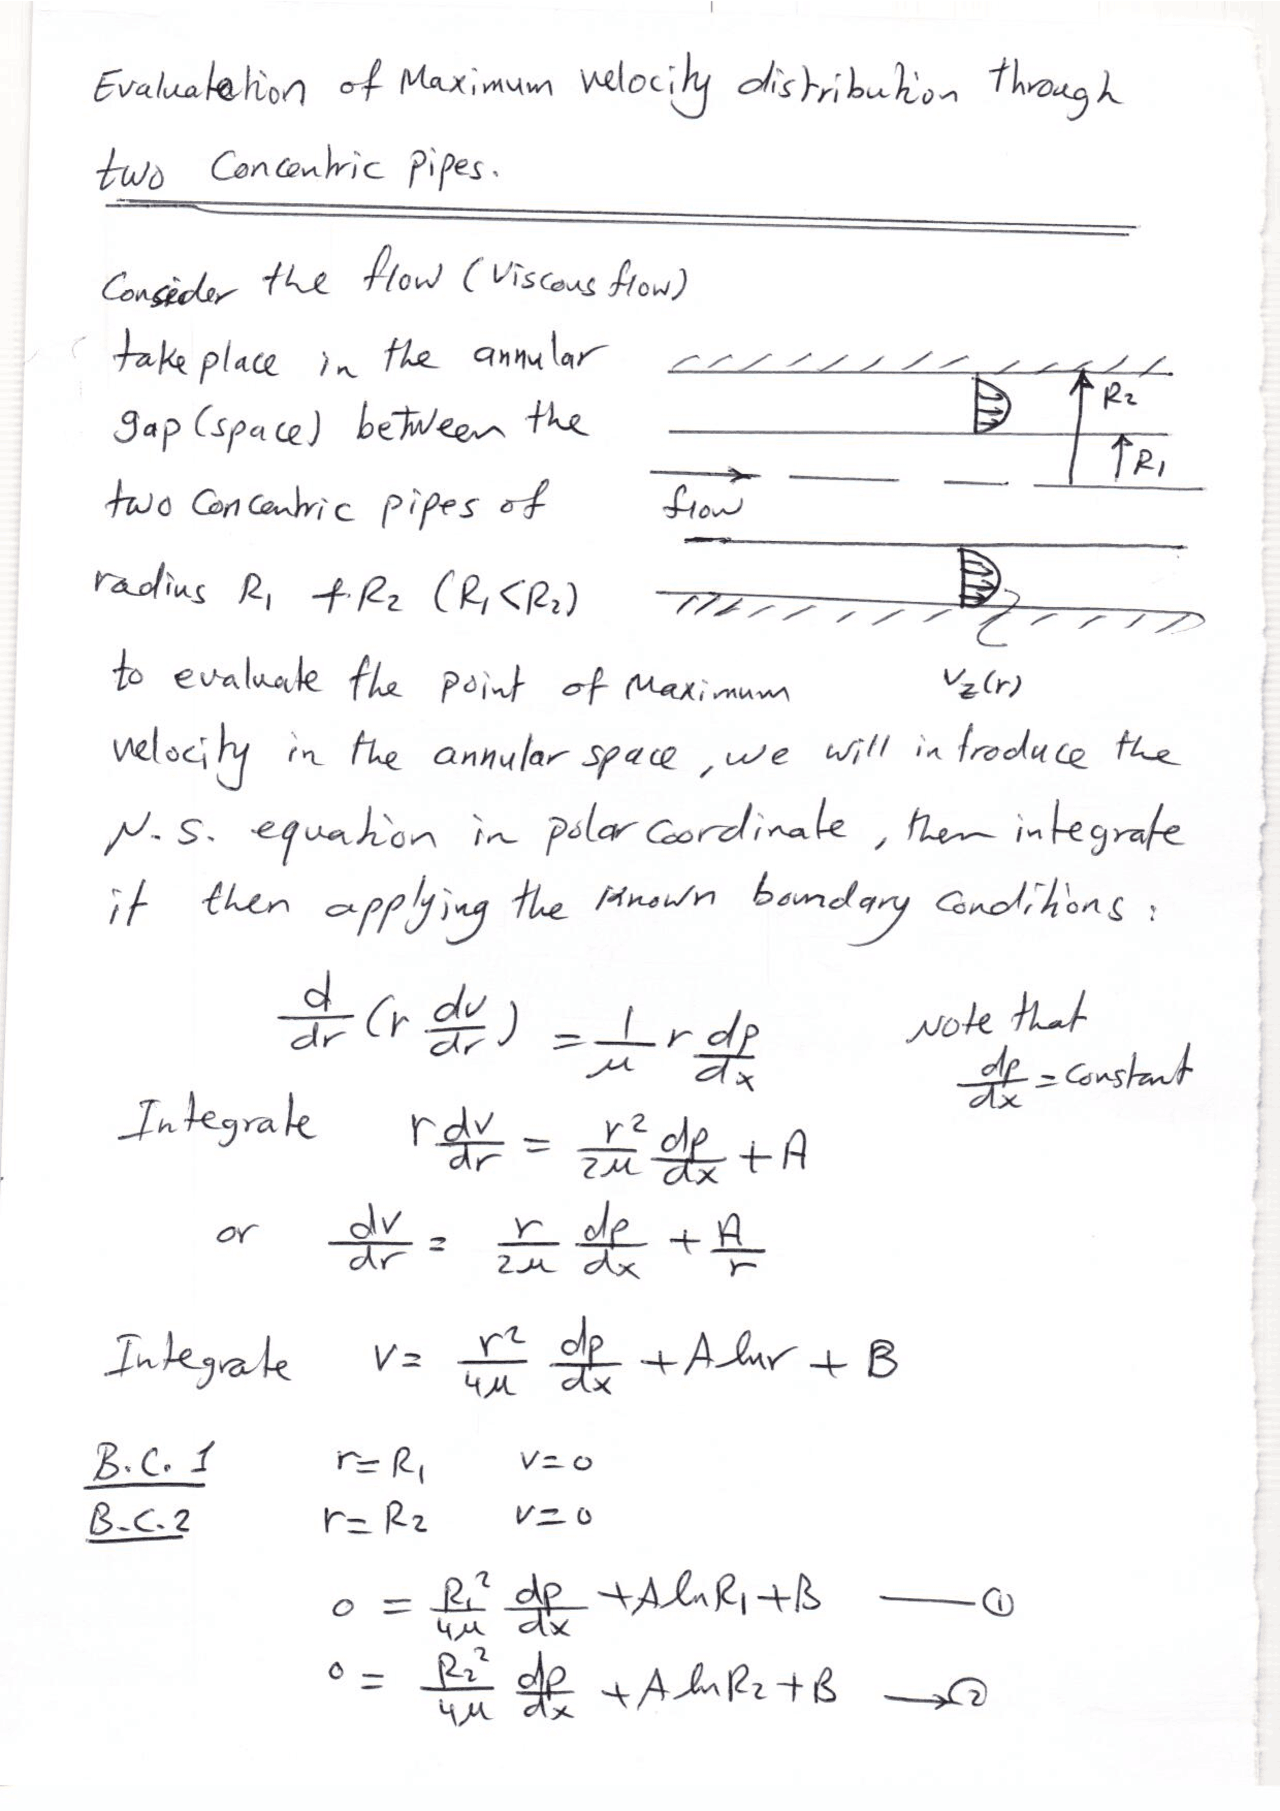 Evaluatetion of Maximum velocity distribution through
two Concentric Pipes.
Consider the flow (Viscous flow)
take place in the annular
gap (space) between the
two Concentric pipes of
radius R₁ + R₂ (R₁<R₂)
R₂
R₁
flow
v_z(r)
to evaluate the point of Maximum
velocity in the annular space, we will introduce the
N.S. equation in polar Coordinate, then integrate
it then applying the Known boundary Conditions:
d/dr (r dv/dr) = 1/μ r dp/dx
Note that
dp/dx = Constant
Integrate r dv/dr = r²/2μ dp/dx + A
or dv/dr = r/2μ dp/dx + A/r
Integrate V = r²/4μ dp/dx + A ln r + B
B.C. 1 r = R₁ V=0
B.C. 2 r = R₂ V=0
0 = R₁²/4μ dp/dx + A ln R₁ + B — ①
0 = R₂²/4μ dp/dx + A ln R₂ + B → ②